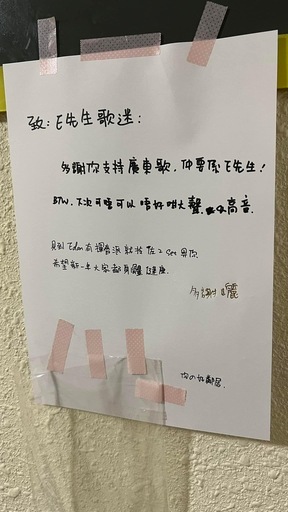 致：E先生歌迷：
多謝你支持廣東歌，仲要係E先生！
BTW，下次可唔可以唔好咁大聲，高音.
見到Edan有揮春派就拎左2 set 畀你
希望新一年大家都身體健康.
多謝晒
你の好鄰居.